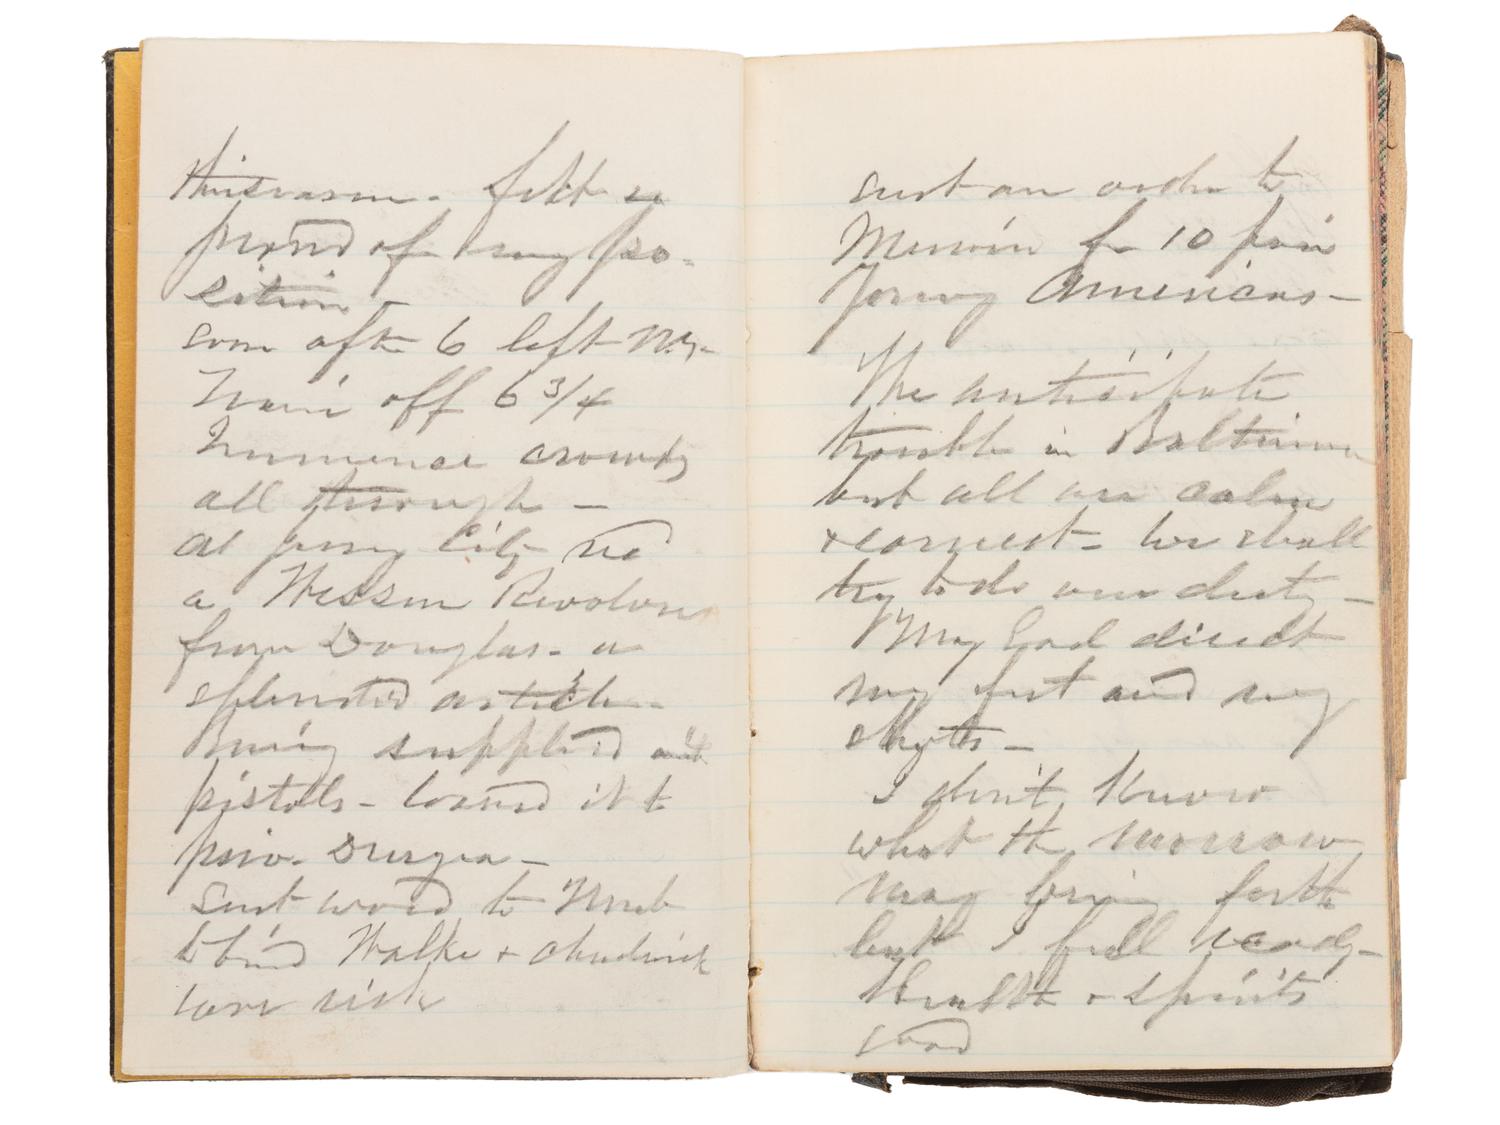 this reason. felt so
proud of my po-
sition -
soon after 6 left N.Y.
Train off 6 3/4
Immense crowds
all through -
at Jersey City rec'd
a Wesson Revolver
from Douglas - a
splendid article -
Being supplied with
pistols - loaned it to
priv.
Sent word to
to Walke &
sick
sent an order to
for 10 pair
Young Americans -
The anticipate
trouble in Baltimore
but all are calm
& earnest - We shall
try to do our duty -
May God direct
my feet and my
shots -
I don't know
what the morrow
may bring forth
but I feel ready -
Health & spirits
good